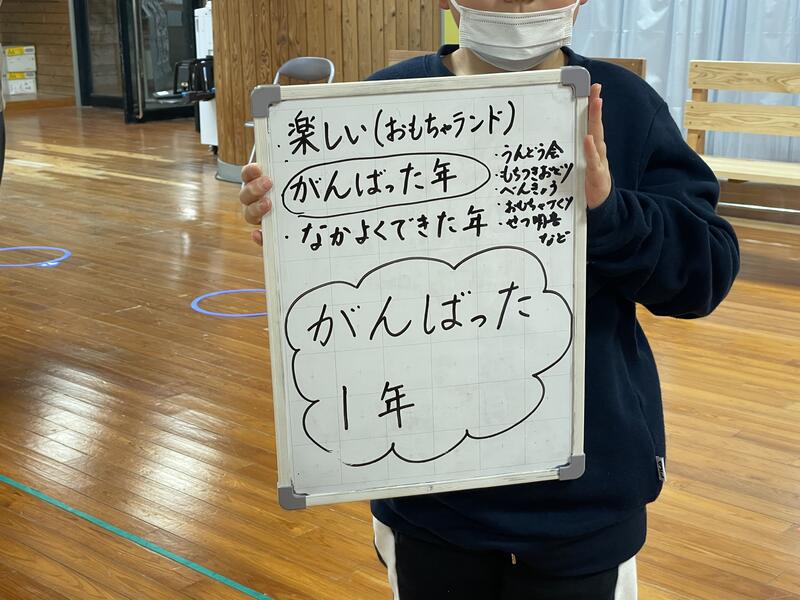 ・楽しい(おもちゃランド)
がんばった年
・なかよくできた年
・うんどう会
・もちつきおどり
・べんきょう
・おもちゃづくり
・せつ明書
など
がんばった
1年